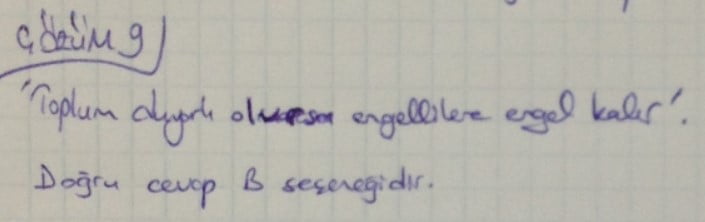 Çözüm 9
"Toplum duyarlı olursa engellilere engel kalır".
Doğru cevap B seçeneğidir.